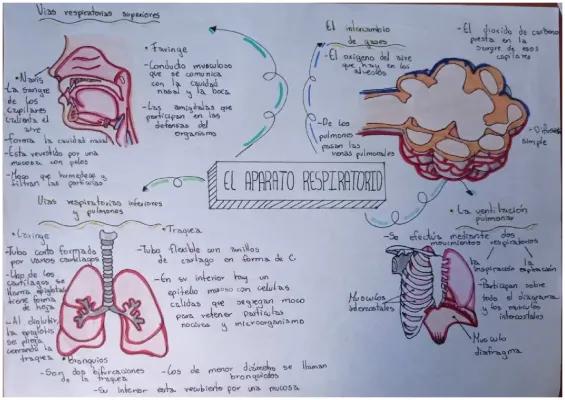 Vias respiratorias superiores
• Naris
-La sangre
de los
capilares
calienta el
aire
-forma la cavidad nasal
-Esta revestido por una
mucosa con pelos
-Moco que humedece y
filtran las particulas
• Faringe
-Conducto musculoso
que se comunica
con la cavidad
nasal y la boca
-Las amigdalas que
participan en las
defensas del
organismo
El intercambio
de gases
-El oxigeno del aire
que hay en los
alveolos
-De los
pulmones
pasan las
venas pulmonales
-El dioxido de carbono
presta en la
sangre de esos
capilares
-Difusion
simple
EL APARATO RESPIRATORIO
Vias respiratorias inferiores
y pulmones
• Laringe
-Tubo corto formado
por varios cartilagos
-Uno de los
cartilagos se
llama epiglotis
tiene forma
de hoja
-Al diglutir,
la epiglotis
se pliega
cerrando la
traquea
• Traquea
-Tubo flexible con anillos
de cartlago en forma de C
-En su interior hay un
epitelio mucoso con celulas
calidas que segregan moco
para retener particulas
nocivas y microorganismo
• Bronquios
-Son dos bifurcaciones
de la traquea
-Los de menor diametro se llaman
bronquiolos
-Su interior esta recubierto por una mucosa
• La ventilación
pulmonar
-Se efectua mediante dos
movimientos respiratorios
la
inspiración
la
espiración
-Participan sobre
todo el diagrama
y los musculos
intercostales
Musculos
intercostales
Musculo
diafragma